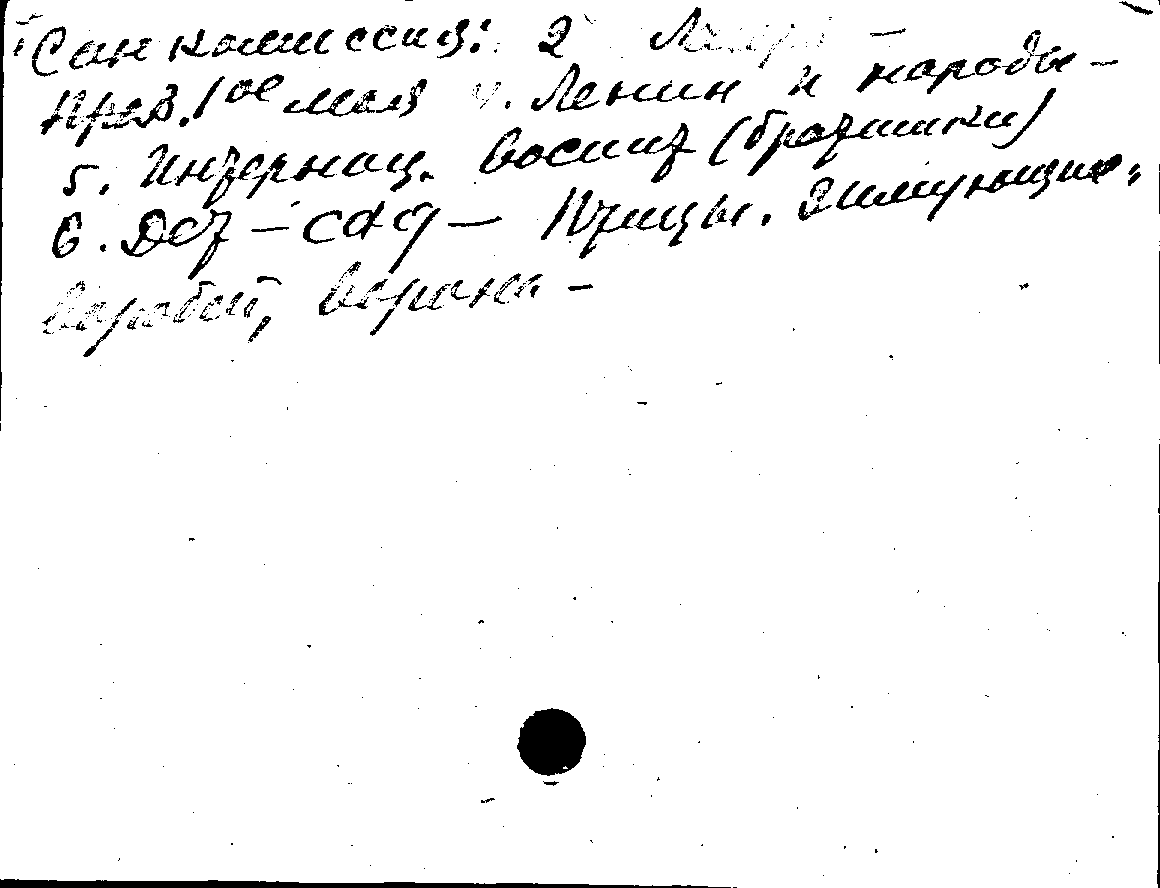 Санкомиссия: 2
1ое мая Ленин и народы -
5. Интернац. воспит (братишки)
6. Дет - сад - Птицы. Зимующие,
воробей, ворона -